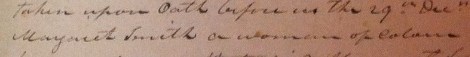 taken upon Oath before us the 29th Decr
Margaret Smith a woman of Colour